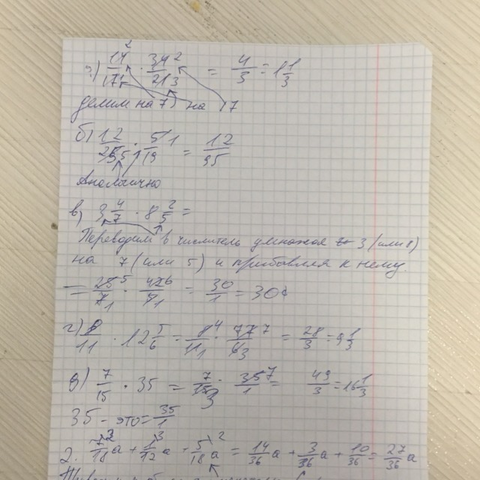 а) 14²/17₁ · 34²/21₃ = 4/3 = 1 1/3
делим на 7) на 17
б) 12/25₅ · 5¹/19 = 12/95
Аналогично
в) 3 4/7 · 8 2/5 =
Переводим в числитель умножая 3 (или 8)
на 7 (или 5) и прибавляя к нему
= 25⁵/7₁ · 42⁶/5₁ = 30/1 = 30
г) 8/11 · 12 5/6 = 8⁴/11₁ · 77⁷/6₃ = 28/3 = 9 1/3
д) 7/15 · 35 = 7/15₃ · 35⁷ = 49/3 = 16 1/3
35 - это = 35/1
2. 7²/18 a + 1³/12 a + 5²/18 a = 14/36 a + 3/36 a + 10/36 = 27/36 a